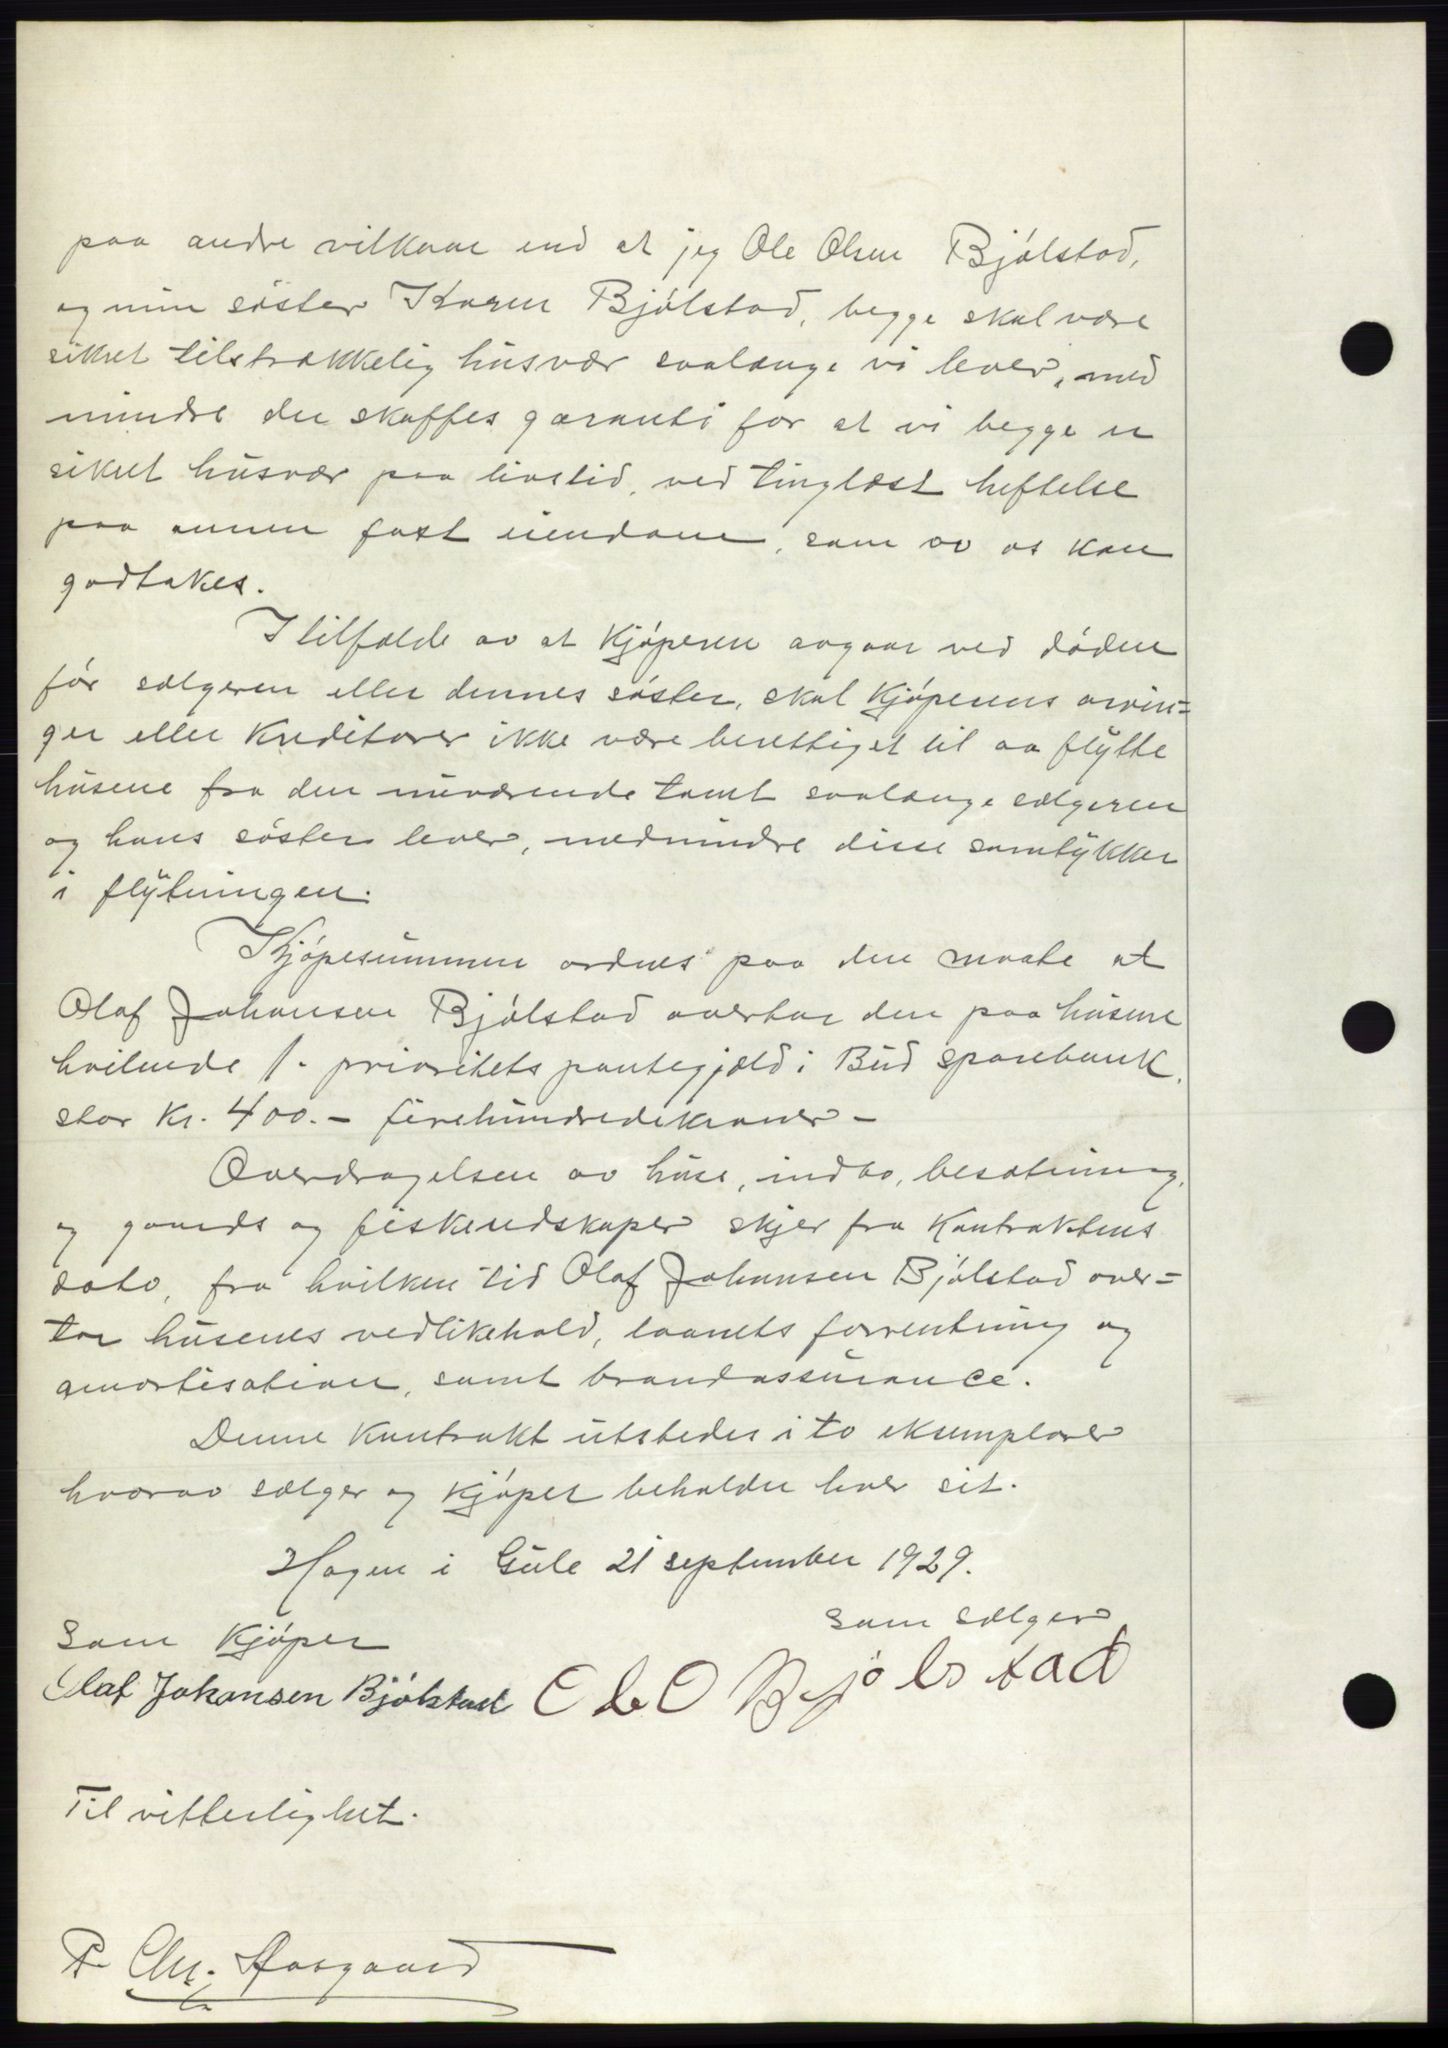 paa andre vilkaar end at jeg Ole Olsen Bjólstad,
og min sóster Karen Bjólstad, begge skal være
sikret tilstrækkelig husvær saalænge vi lever, med
mindre der skaffes garanti for at vi begge er
sikret husvær paa livstid, ved tinglæst heftelse
paa annen fast eiendom, som av os kan
godtakes.
I tilfælde av at kjóperen avgaar ved dóden
fór sælgeren eller dennes sóster, skal kjóperens arvin=
ger eller kreditorer ikke være berettiget til aa flytte
husene fra den nuværende tomt saalænge sælgeren
og hans sóster lever, medmindre disse samtykker
i flytningen.
Kjópesummen ordnes paa den maate at
Olaf Johansen Bjólstad overtar den paa husene
hvilende 1. prioritets pantegjæld i Bud sparebank,
stor kr. 400.- firehundredekroner -
Overdragelsen av huse, indbo, besætning,
og gaards og fiskeredskaper skjer fra kontraktens
dato, fra hvilken tid Olaf Johansen Bjólstad over=
tar husenes vedlikehold, laanets forrentning og
amortisation, samt brandassurance.
Denne kontrakt utstedes i to eksemplarer
hvorav sælger og kjóper beholder hver sit.
Hagen i Gule 21 september 1929.
som sælger
Som kjóper
Olaf Johansen Bjólstad Ole O Bjólstad
Til vitterlighet.
P. Chr. Aasgaard